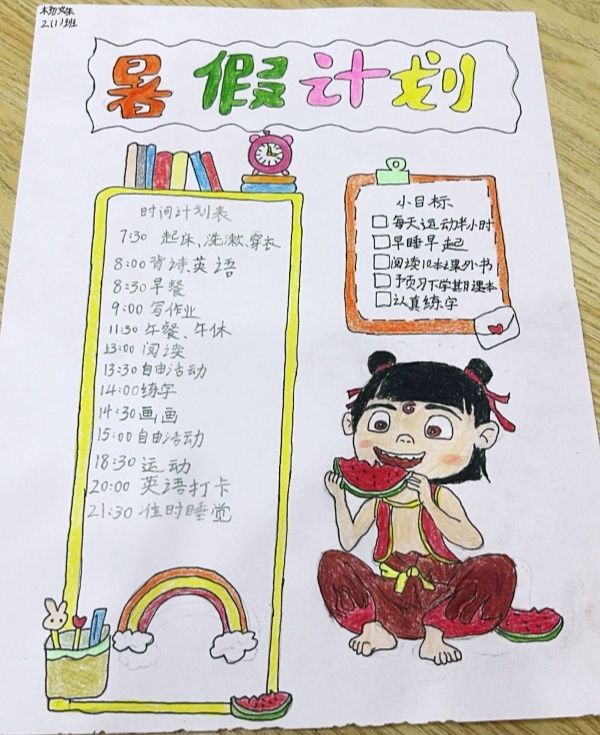 2(1)班
暑假计划
时间计划表
7:30 起床、洗漱、穿衣
8:00 背诗、英语
8:30 早餐
9:00 写作业
11:30 午餐、午休
13:00 阅读
13:30 自由活动
14:00 练字
14:30 画画
15:00 自由活动
18:30 运动
20:00 英语打卡
21:30 准时睡觉
小目标
每天运动半小时
早睡早起
阅读12本课外书
预习下学期课本
认真练字